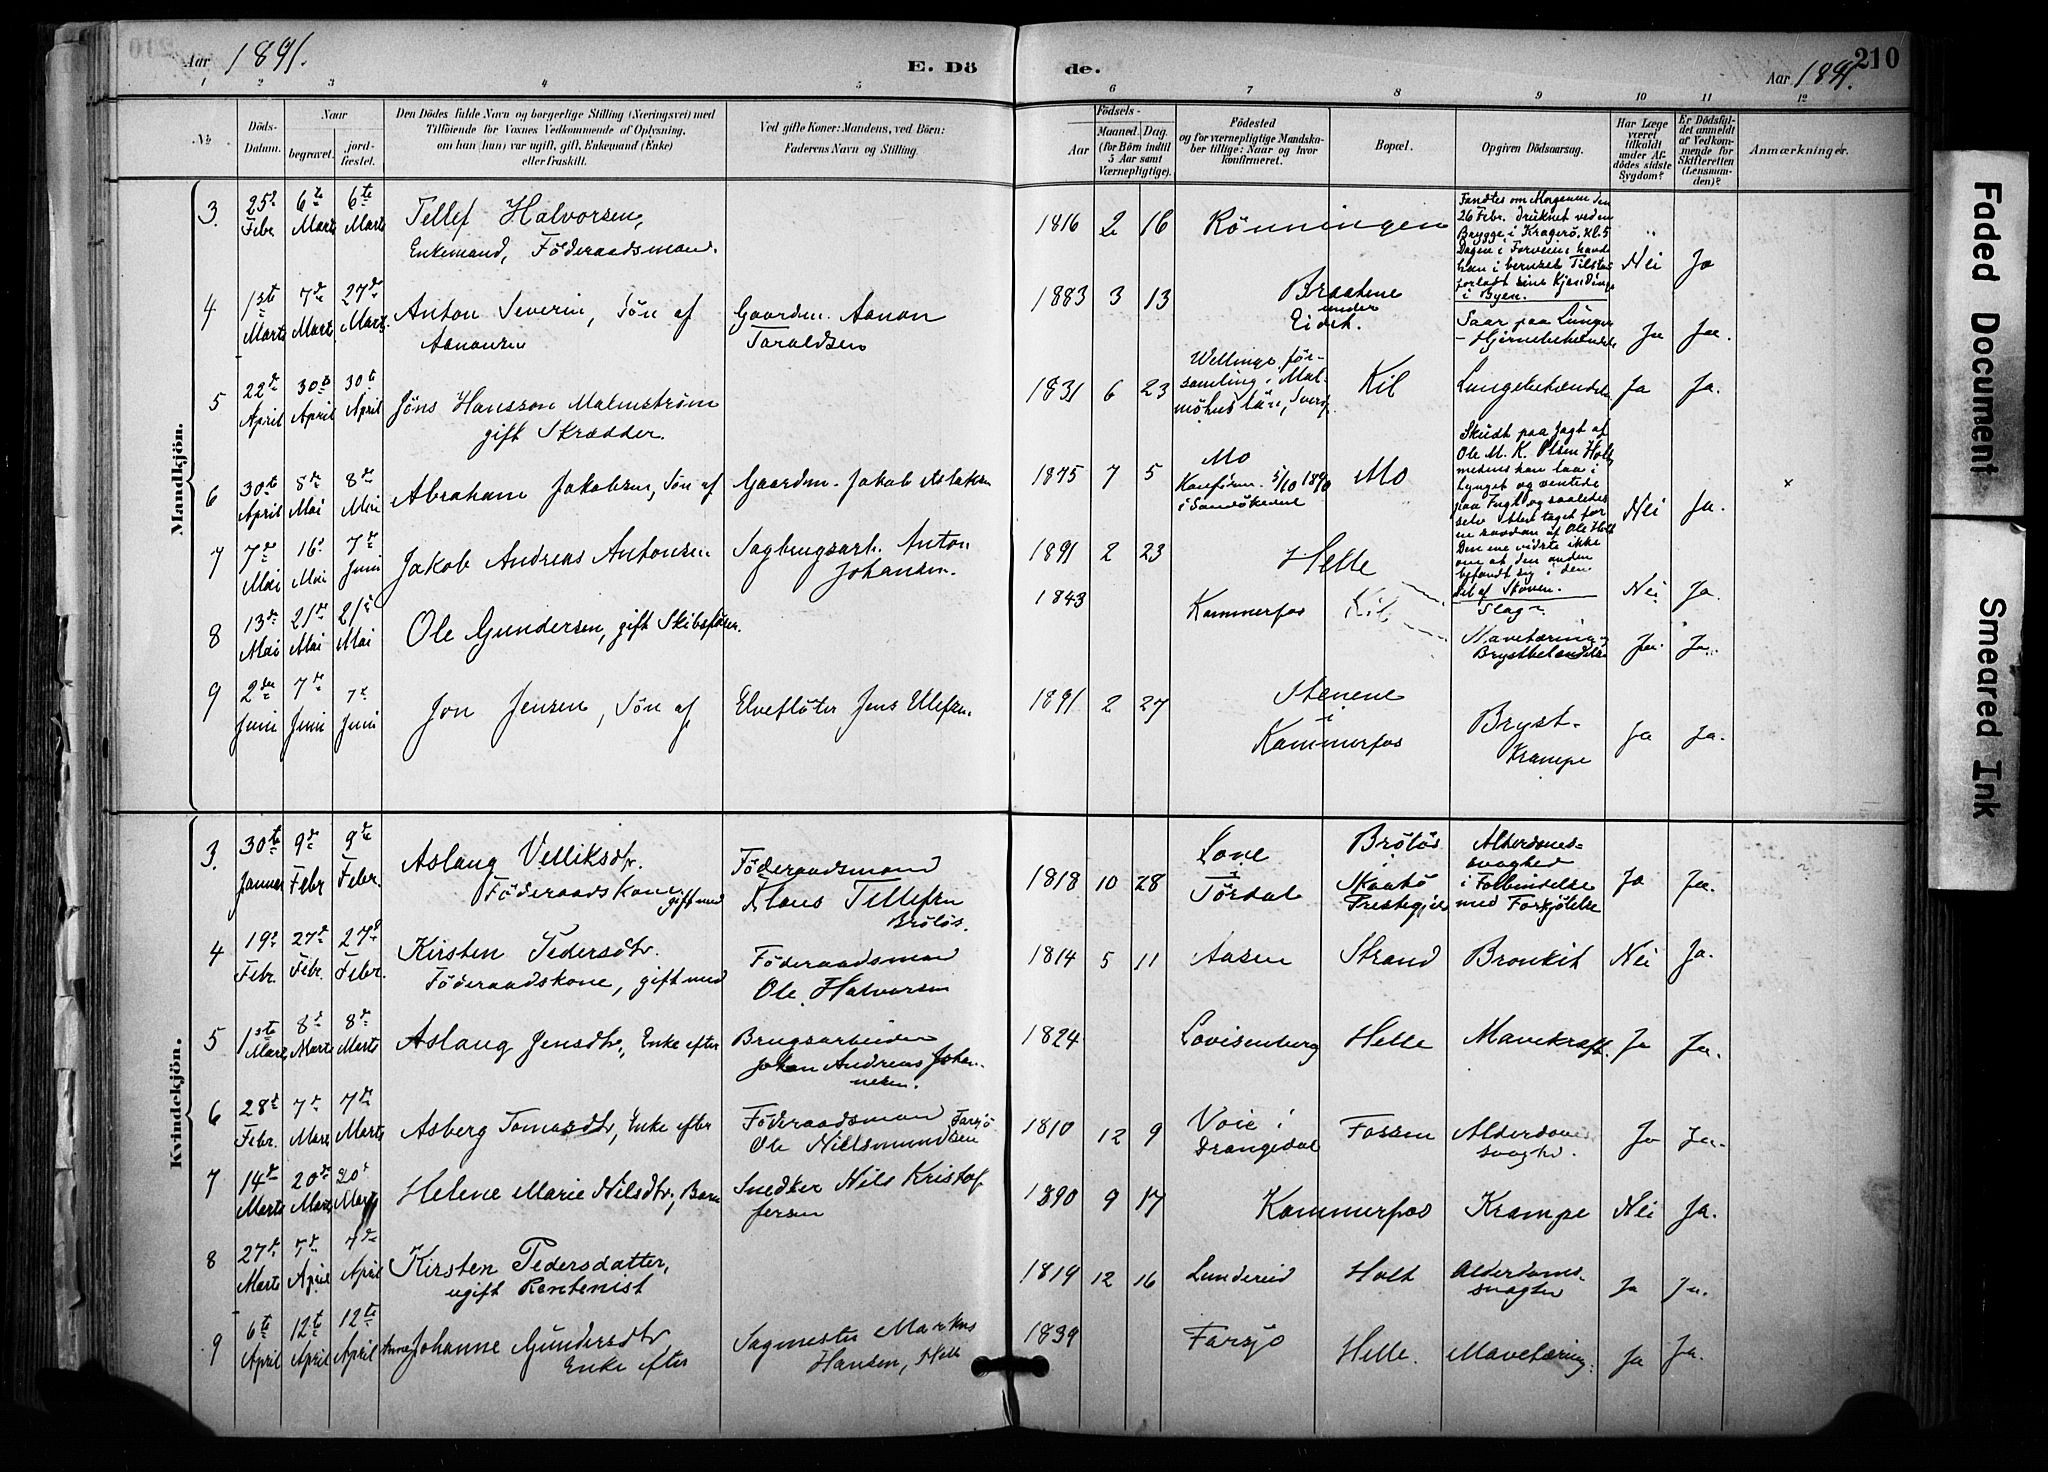 210
Aar 1891.
E. Dö de.
Aar 1891.
1 2 3 4 5 6 7 8 9 10 11 12
No
Döds-
Datum.
Naar
begravet.
jord-
festet.
Den Dödes fulde Navn og borgerlige Stilling (Næringsvei) med
Tilföiende for Voxnes Vedkommende af Oplysning,
om han (hun) var ugift, gift, Enkemand (Enke)
eller fraskilt.
Ved gifte Koner: Mandens, ved Börn:
Faderens Navn og Stilling.
Födsels-
Aar
Maaned. Dag.
(for Börn indtil
5 Aar samt
Værnepligtige).
Födested
og for værnepligtige Mandska-
ber tillige: Naar og hvor
konfirmeret.
Bopæl.
Opgiven Dödsaarsag.
Har Læge
været
tilkaldt
under Af-
dödes sidste
Sygdom?
Er Dödsfal-
det anmeldt
af Vedkom-
mende for
Skifteretten
(Lensman-
den)?
Anmærkninger.
Mandkjön.
3. 25de Febr. 6te Marts 6te Marts
Tellef Halvorsen,
Enkemand, Föderaadsmand.
1816 2 16 Rönningen
Fandtes om Morgenen den
26 Febr. druknet ved en
Brygge i Kragerö. Kl. 5
Dagen i Forveien havde
han i beruset Tilstand
forladt sine Kjendinge
i Byen.
Nei Ja
4 1ste Marts 7de Marts 27de Marts.
Anton Severin, Sön af
Aanonsen
Gaardm. Aanon
Taraldsen
1883 3 13 Braatene
under
Eidet.
Saar paa Lunger
- Hjernebetændelse
Ja Ja.
5 22de April 30te April 30te April
Jöns Hansson Malmström
gift Skrædder.
1831 6 23
Wellinge för-
samling i Mal-
möhus län, Sverig
Kil Lungebetændelse Ja Ja.
6 30te April 8de Mai 8de Mai
Abraham Jakobsen, Sön af Gaardm. Jakob Aslaksen
1875 7 5 Mo
Konfirm. 5/10 1890
i Sannökedal
Mo
Skudt paa Jagt af
Ole M. K. Olsen Holt
medens han laa i
Lynget og ventede
paa Fugl og saaledes
selv blev taget for
en saadan af Ole Holt
Den ene vidste ikke
om at den anden
befandt sig i den
Del af Skoven.
Nei Ja. x
7 7de Mai 16de Mai 7de Juni
Jakob Andreas Antonsen Sagbrugsarb. Anton
Johansen.
1891 2 23 Helle Slag Nei Ja.
8 13de Mai 21de Mai 21de Mai
Ole Gundersen, gift Skibsförer.
1843 Kammerfos Kil
Mavetæring og
Brystbetændelse
Ja. Ja.
9 2den Juni 7de Juni 7de Juni
Jon Jensen, Sön af Elveflöter Jens Ulefsen.
1891 2 27 Stenene
i
Kammerfos
Bryst-
Krampe
Ja Ja.
Kvindekjön.
3. 30te Januar 9de Febr 9de Febr.
Aslaug Velliksdtr.
Föderaadskone gift med
Föderaadsmand
Klaus Tellefsen
Brölös.
1818 10 28 Lone
i
Tördal
Brölös
i
Skaatö
Prestegjeld
Alderdoms-
svaghed
i Forbindelse
med Forkjölelse
Ja Ja.
4 19de Febr. 27de Febr. 27de Febr.
Kirsten Pedersdtr.
Föderaadskone, gift med
Föderaadsmand
Ole Halvorsen
1814 5 11 Aasen Strand Bronkit Nei Ja.
5 1ste Marts 8de Marts 8de Marts
Aslaug Jensdtr, Enke efter Brugsarbeider
Johan Andreas Johan-
nesen.
1824 Lovisenberg Helle Mavekræft. Ja Ja.
6 28de Febr. 7de Marts 7de Marts
Asberg Tomasdtr, Enke efter Föderaadsmand Farsjö
Ole Nilssmundsen
1810 12 9 Voie i
Drangedal
Fossen Alderdoms
svaghed.
Ja Ja.
7 14de Marts 20de Marts 20de Marts
Helene Marie Nilsdtr, Barn Snedker Nils Kristof-
fersen
1890 9 17 Kammerfos Krampe Nei Ja.
8 27de Marts 7de April 7de April
Kirsten Pedersdatter,
ugift Rentenist
1819 12 16 Lundereid Holt Alderdoms-
svaghed
Ja Ja.
9 6te April 12te April 12te April
Anne Johanne Gundersdtr
Enke efter
Sagmester Markus
Hansen, Helle
1839 Farsjö Helle. Mavetæring. Ja Ja.
Faded Document
Smeared Ink